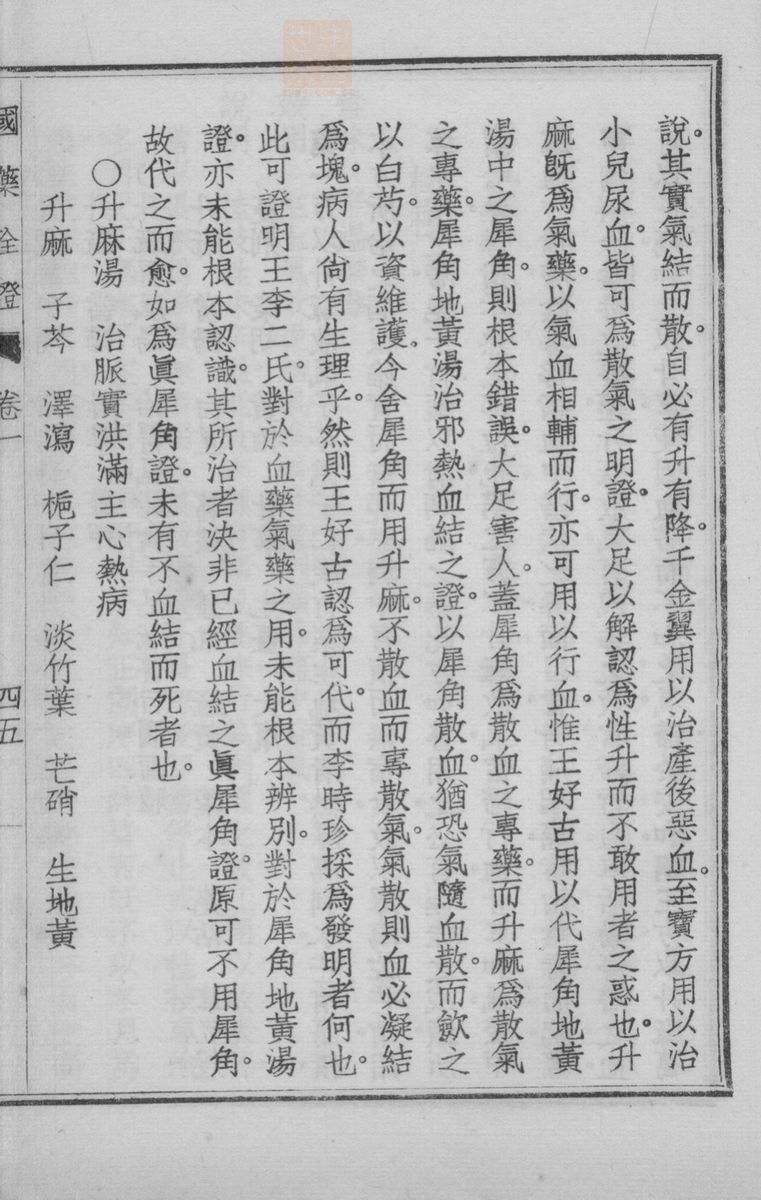 說。其實氣結而散。自必有升有降。千金翼用以治產後惡血。至寶方用以治
小兒尿血。皆可爲散氣之明證。大足以解認爲性升而不敢用者之惑也。升
麻旣爲氣藥。以氣血相輔而行。亦可用以行血。惟王好古用以代犀角地黃
湯中之犀角。則根本錯誤。大足害人。蓋犀角爲散血之專藥。而升麻爲散氣
之專藥。犀角地黃湯治邪熱血結之證。以犀角散血。猶恐氣隨血散。而歛之
以白芍。以資維護。今舍犀角而用升麻。不散血而專散氣。氣散則血必凝結
爲塊。病人尙有生理乎。然則王好古認爲可代。而李時珍採爲發明者何也。
此可證明王李二氏。對於血藥氣藥之用。未能根本辨別。對於犀角地黃湯
證。亦未能根本認識。其所治者決非已經血結之眞犀角證。原可不用犀角。
故代之而愈。如爲眞犀角證。未有不血結而死者也。
○升麻湯　治脈實洪滿主心熱病
升麻　子芩　澤瀉　梔子仁　淡竹葉　芒硝　生地黃
國藥詮證　卷一　四五